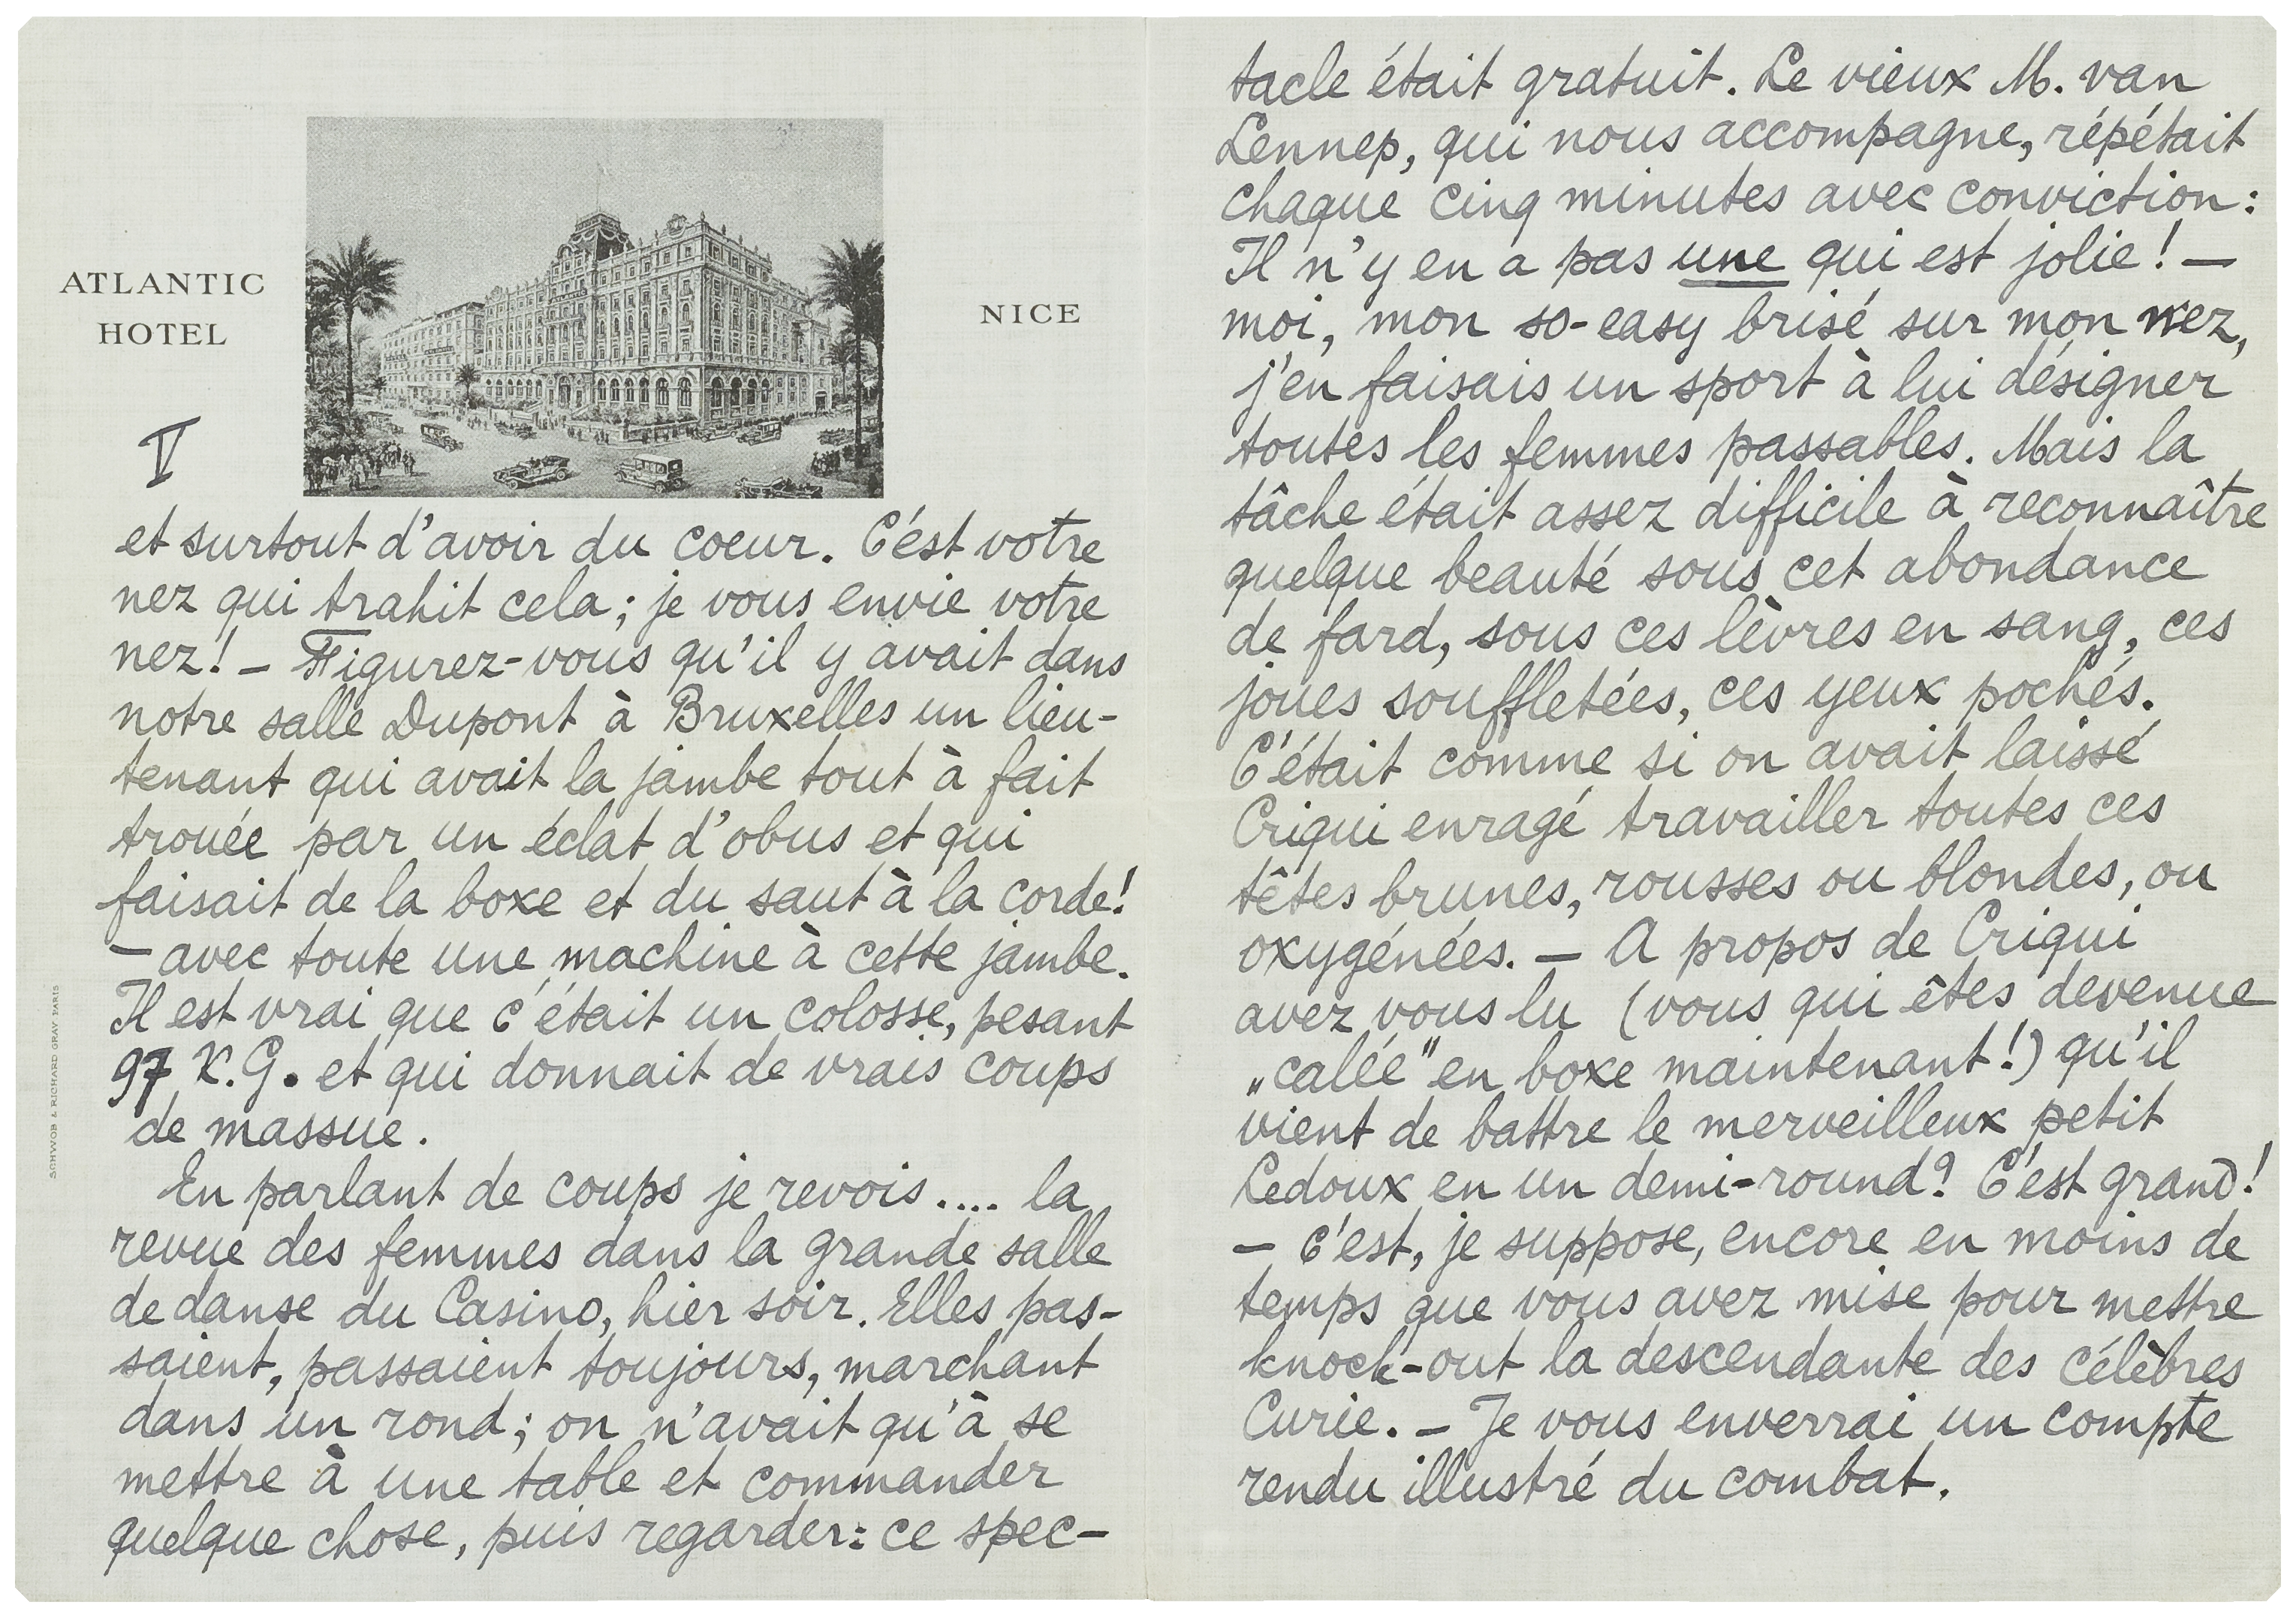 ATLANTIC
HOTEL
NICE
V
et surtout d'avoir du coeur. C'est votre
nez qui trahit cela; je vous envie votre
nez! – Figurez-vous qu'il y avait dans
notre salle Dupont à Bruxelles un lieu-
tenant qui avait la jambe tout à fait
trouée par un éclat d'obus et qui
faisait de la boxe et du saut à la corde!
– avec toute une machine à cette jambe.
Il est vrai que c'était un colosse, pesant
97 K.G. et qui donnait de vrais coups
de massue.
En parlant de coups je revois .... la
revue des femmes dans la grande salle
de danse du Casino, hier soir. Elles pas-
saient, passaient toujours, marchant
dans un rond; on n'avait qu'à se
mettre à une table et commander
quelque chose, puis regarder: ce spec-
SCHWOB & RICHARD GRAV. PARIS
tacle était gratuit. Le vieux M. van
Lennep, qui nous accompagne, répétait
chaque cinq minutes avec conviction:
Il n'y en a pas une qui est jolie! –
moi, mon so-easy brisé sur mon nez,
j'en faisais un sport à lui désigner
toutes les femmes passables. Mais la
tâche était assez difficile à reconnaître
quelque beauté sous cet abondance
de fard, sous ces lèvres en sang, ces
joues souffletées, ces yeux pochés.
C'était comme si on avait laissé
Criqui enragé travailler toutes ces
têtes brunes, rousses ou blondes, ou
oxygénées. – A propos de Criqui
avez vous lu (vous qui êtes devenue
„calée" en boxe maintenant!) qu'il
vient de battre le merveilleux petit
Ledoux en un demi-round? C'est grand!
– c'est, je suppose, encore en moins de
temps que vous avez mise pour mettre
knock-out la descendante des célèbres
Curie. – Je vous enverrai un compte
rendu illustré du combat.